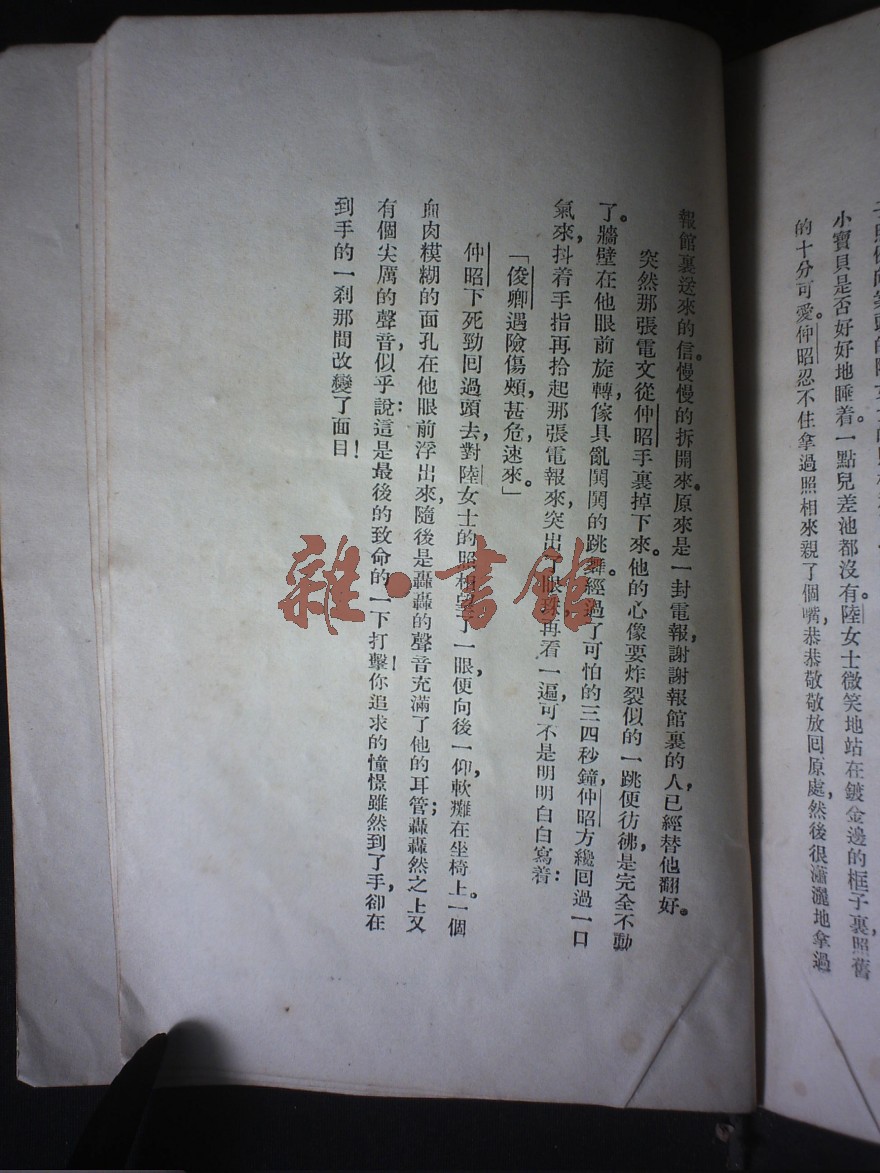 小寶貝是否好好地睡着。一點兒差池都沒有。陸女士微笑地站在鍍金邊的框子裏,照舊
的十分可愛。仲昭忍不住拿過照相來親了個嘴,恭恭敬敬放回原處,然後很瀟灑地拿過
報館裏送來的信。慢慢的拆開來。原來是一封電報,謝謝報館裏的人,已經替他翻好。
突然那張電文從仲昭手裏掉下來。他的心像要炸裂似的一跳,便彷彿是完全不動
了。牆壁在他眼前旋轉,傢具亂閧閧的跳舞。經過了可怕的三四秒鐘,仲昭方纔回過一口
氣來,抖着手指再拾起那張電報來,突出了眼珠,再看一遍,可不是明明白白寫着:
「俊卿遇險傷頰,甚危,速來。」
仲昭下死勁回過頭去,對陸女士的照相望了一眼,便向後一仰,軟癱在坐椅上。一個
血肉糢糊的面孔在他眼前浮出來,隨後是轟轟的聲音充滿了他的耳管;轟轟然之上又
有個尖厲的聲音,似乎說:這是最後的致命的一下打擊!你追求的憧憬雖然到了手,卻在
到手的一剎那間改變了面目!
雜·書館